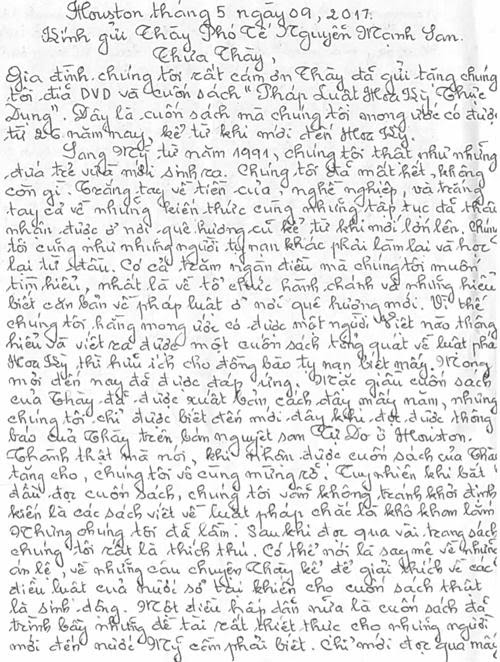 Houston tháng 5 ngày 09, 2017.
Kính gửi Thầy Phó Tế Nguyễn Mạnh San.
Thưa Thầy,
Gia đình chúng tôi rất cám ơn Thầy đã gửi tặng chúng
tôi đĩa DVD và cuốn sách "Pháp Luật Hoa Kỳ Thực
Dụng". Đây là cuốn sách mà chúng tôi mong ước có được
từ 26 năm nay, kể từ khi mới đến Hoa Kỳ.
Sang Mỹ từ năm 1991, chúng tôi thật như những
đứa trẻ vừa mới sinh ra. Chúng tôi đã mất hết, không
còn gì. Trắng tay về tiền của, nghề nghiệp, và trắng
tay cả về những kiến thức cùng những tập tục đã thâu
nhận được ở nơi quê hương cũ kể từ khi mới lớn lên. Chúng
tôi cũng như những người tỵ nạn khác phải làm lại và học
lại từ đầu. Có cả trăm ngàn điều mà chúng tôi muốn
tìm hiểu, nhất là về tổ chức hành chánh và những hiểu
biết căn bản về pháp luật ở nơi quê hương mới. Vì thế
chúng tôi hằng mong ước có được một người Việt nào thông
hiểu và viết ra được một cuốn sách tổng quát về luật pháp
Hoa Kỳ thì hữu ích cho đồng bào tỵ nạn biết mấy. Mong
mỏi đến nay đã được đáp ứng. Mặc giầu cuốn sách
của Thầy đã được xuất bản cách đây mấy năm, nhưng
chúng tôi chỉ được biết đến mới đây khi đọc được thông
báo của Thầy trên bán nguyệt san Tự Do ở Houston.
Thành thật mà nói, khi nhận được cuốn sách của Thầy
tặng cho, chúng tôi vô cùng mừng rỡ. Tuy nhiên khi bắt
đầu đọc cuốn sách, chúng tôi vẫn không tránh khỏi định
kiến là các sách viết về luật pháp chắc là khô khan lắm
Nhưng chúng tôi đã lầm. Sau khi đọc qua vài trang sách
chúng tôi rất là thích thú. Có thể nói là say mê về những
án lệ, về những câu chuyện Thầy kể để giải thích về các
điều luật của nước sở tại khiến cho cuốn sách thật
là sinh động. Một điều hấp dẫn nữa là cuốn sách đã
trình bầy những đề tài rất thiết thực cho những người
mới đến nước Mỹ cần phải biết. Chỉ mới đọc qua mấy